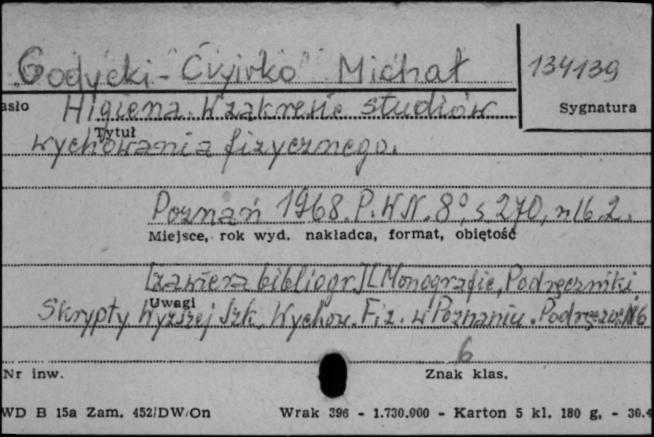 Godycki-Ćwirko Michał
134139
asło
Higiena. W zakresie studiów
Sygnatura
Tytuł
wychowania fizycznego.
Poznań 1968. P.WN. 8°, s 270, nlb 2.
Miejsce, rok wyd. nakładca, format, objętość
[zawiera bibliogr.][Monografie, Podręczniki
Uwagi
Skrypty Wyższej Szk. Wychow. Fiz. w Poznaniu. Podręczn. N 6
6
Nr inw.
Znak klas.
WD B 15a Zam. 452/DW/On Wrak 396 - 1.730.000 - Karton 5 kl. 180 g, - 30.4